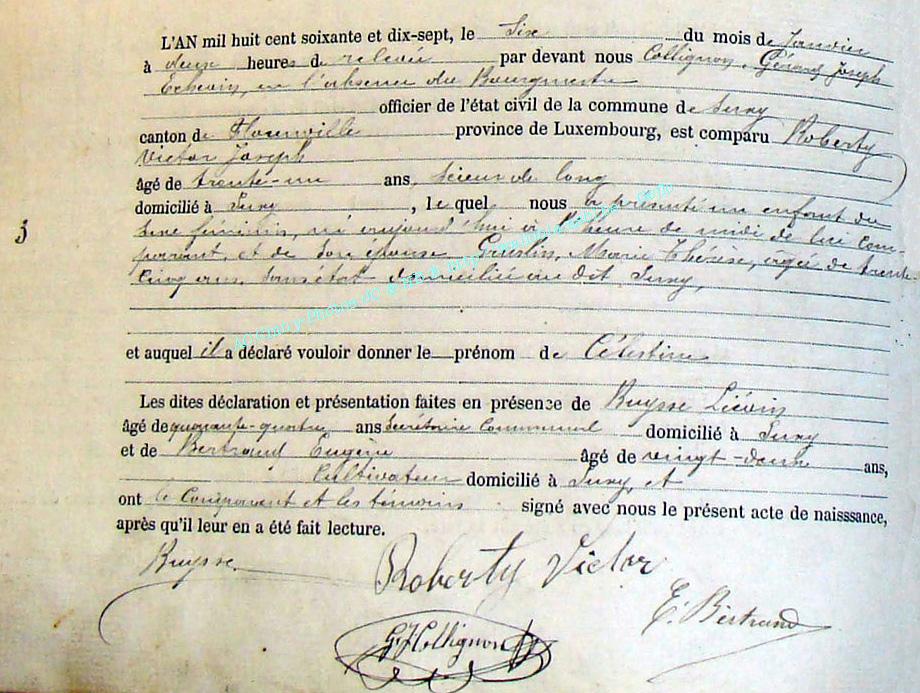 L'AN mil huit cent soixante et dix-sept, le Six du mois de Janvier
à deux heures de relevée par devant nous Collignon, Gérard Joseph
Echevin, en l'absence du Bourgmestre
officier de l'état civil de la commune de Suxy
canton de Florenville province de Luxembourg, est comparu Roberty
Victor Joseph
âgé de trente-un ans, scieur de long
domicilié à Suxy, lequel nous a présenté un enfant du
3
sexe féminin, né aujourd'hui à l'heure de midi de lui com-
parant, et de son épouse Marie Thérèse, agée de trente-
cinq ans, sans état domiciliée au dit Suxy,
et auquel il a déclaré vouloir donner le prénom de Célestine
Les dites déclaration et présentation faites en présence de Ruysse Liévin
âgé de quarante-quatre ans Secrétaire Communal domicilié à Suxy
et de Bertrand Eugène âgé de vingt-deux ans,
Cultivateur domicilié à Suxy, et
ont le Comparant et les témoins signé avec nous le présent acte de naisssance,
après qu'il leur en a été fait lecture.
Ruysse
Roberty Victor
E. Bertrand
G J Collignon